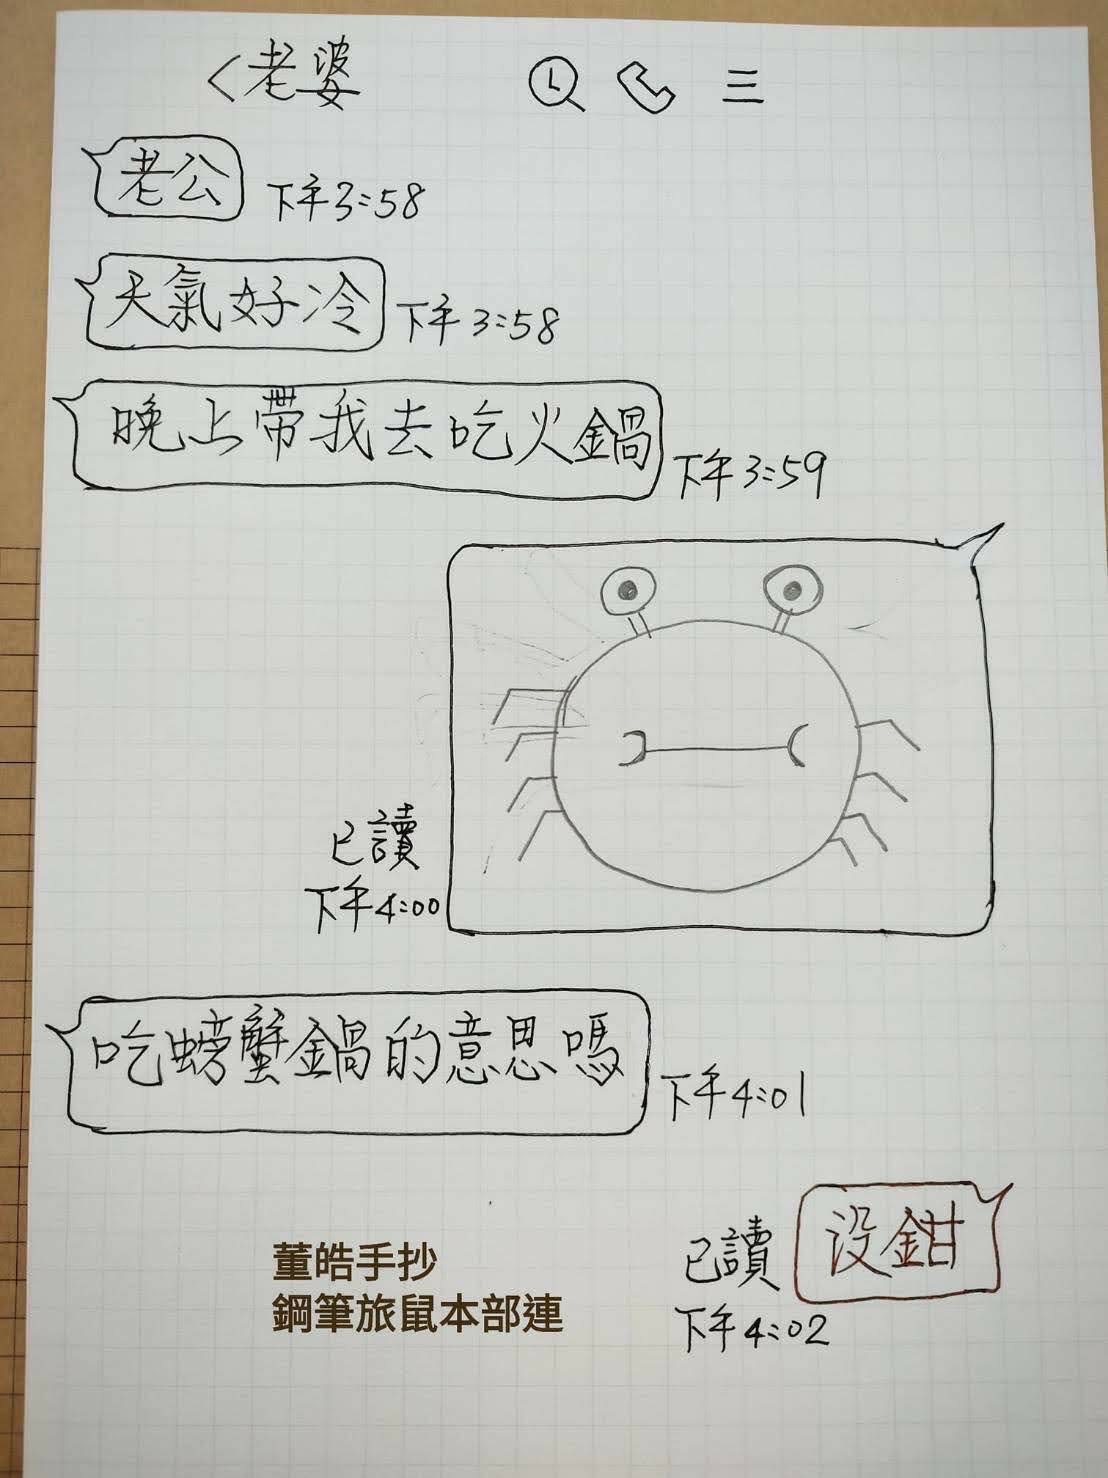 <老婆
老公
下午3:58
天氣好冷
下午3:58
晚上帶我去吃火鍋
下午3:59
已讀
下午4:00
吃螃蟹鍋的意思嗎
下午4:01
没鉗
已讀
下午4:02
董皓手抄
鋼筆旅鼠本部連